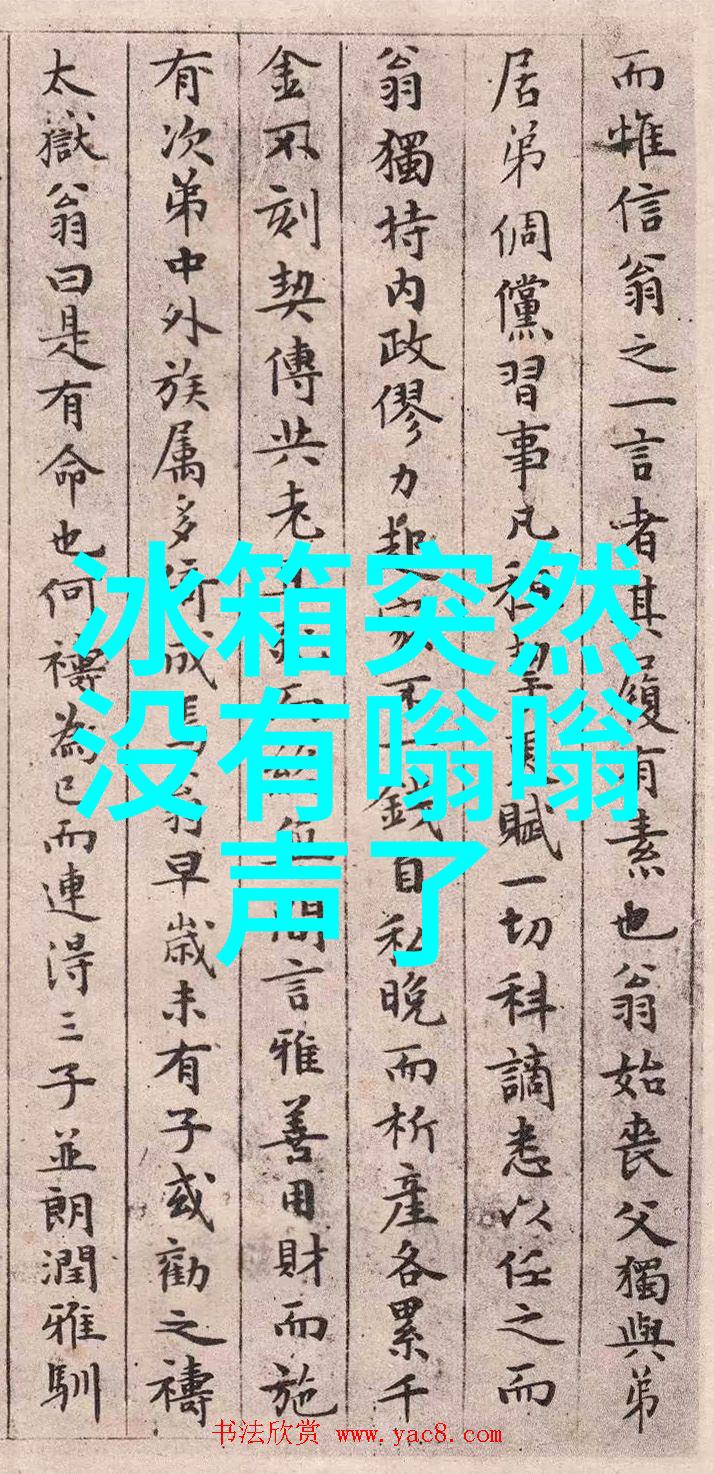 而惟信翁之一言者其履有素也翁始喪父獨與弟
居弟倜儻習事凡租更賦一切科謫悉以任之而
翁獨持内政僇力起家不一錢自私晚而析產各累千
金不刻契傳共老間言雅善用財而施
有次弟中外族属多成翁早歲未有子或勸之禱
太獄翁曰是有命也何禱為已而連得三子並朗潤雅馴
冰箱突然
没有嗡嗡
声了
书法欣赏 www.yac8.com